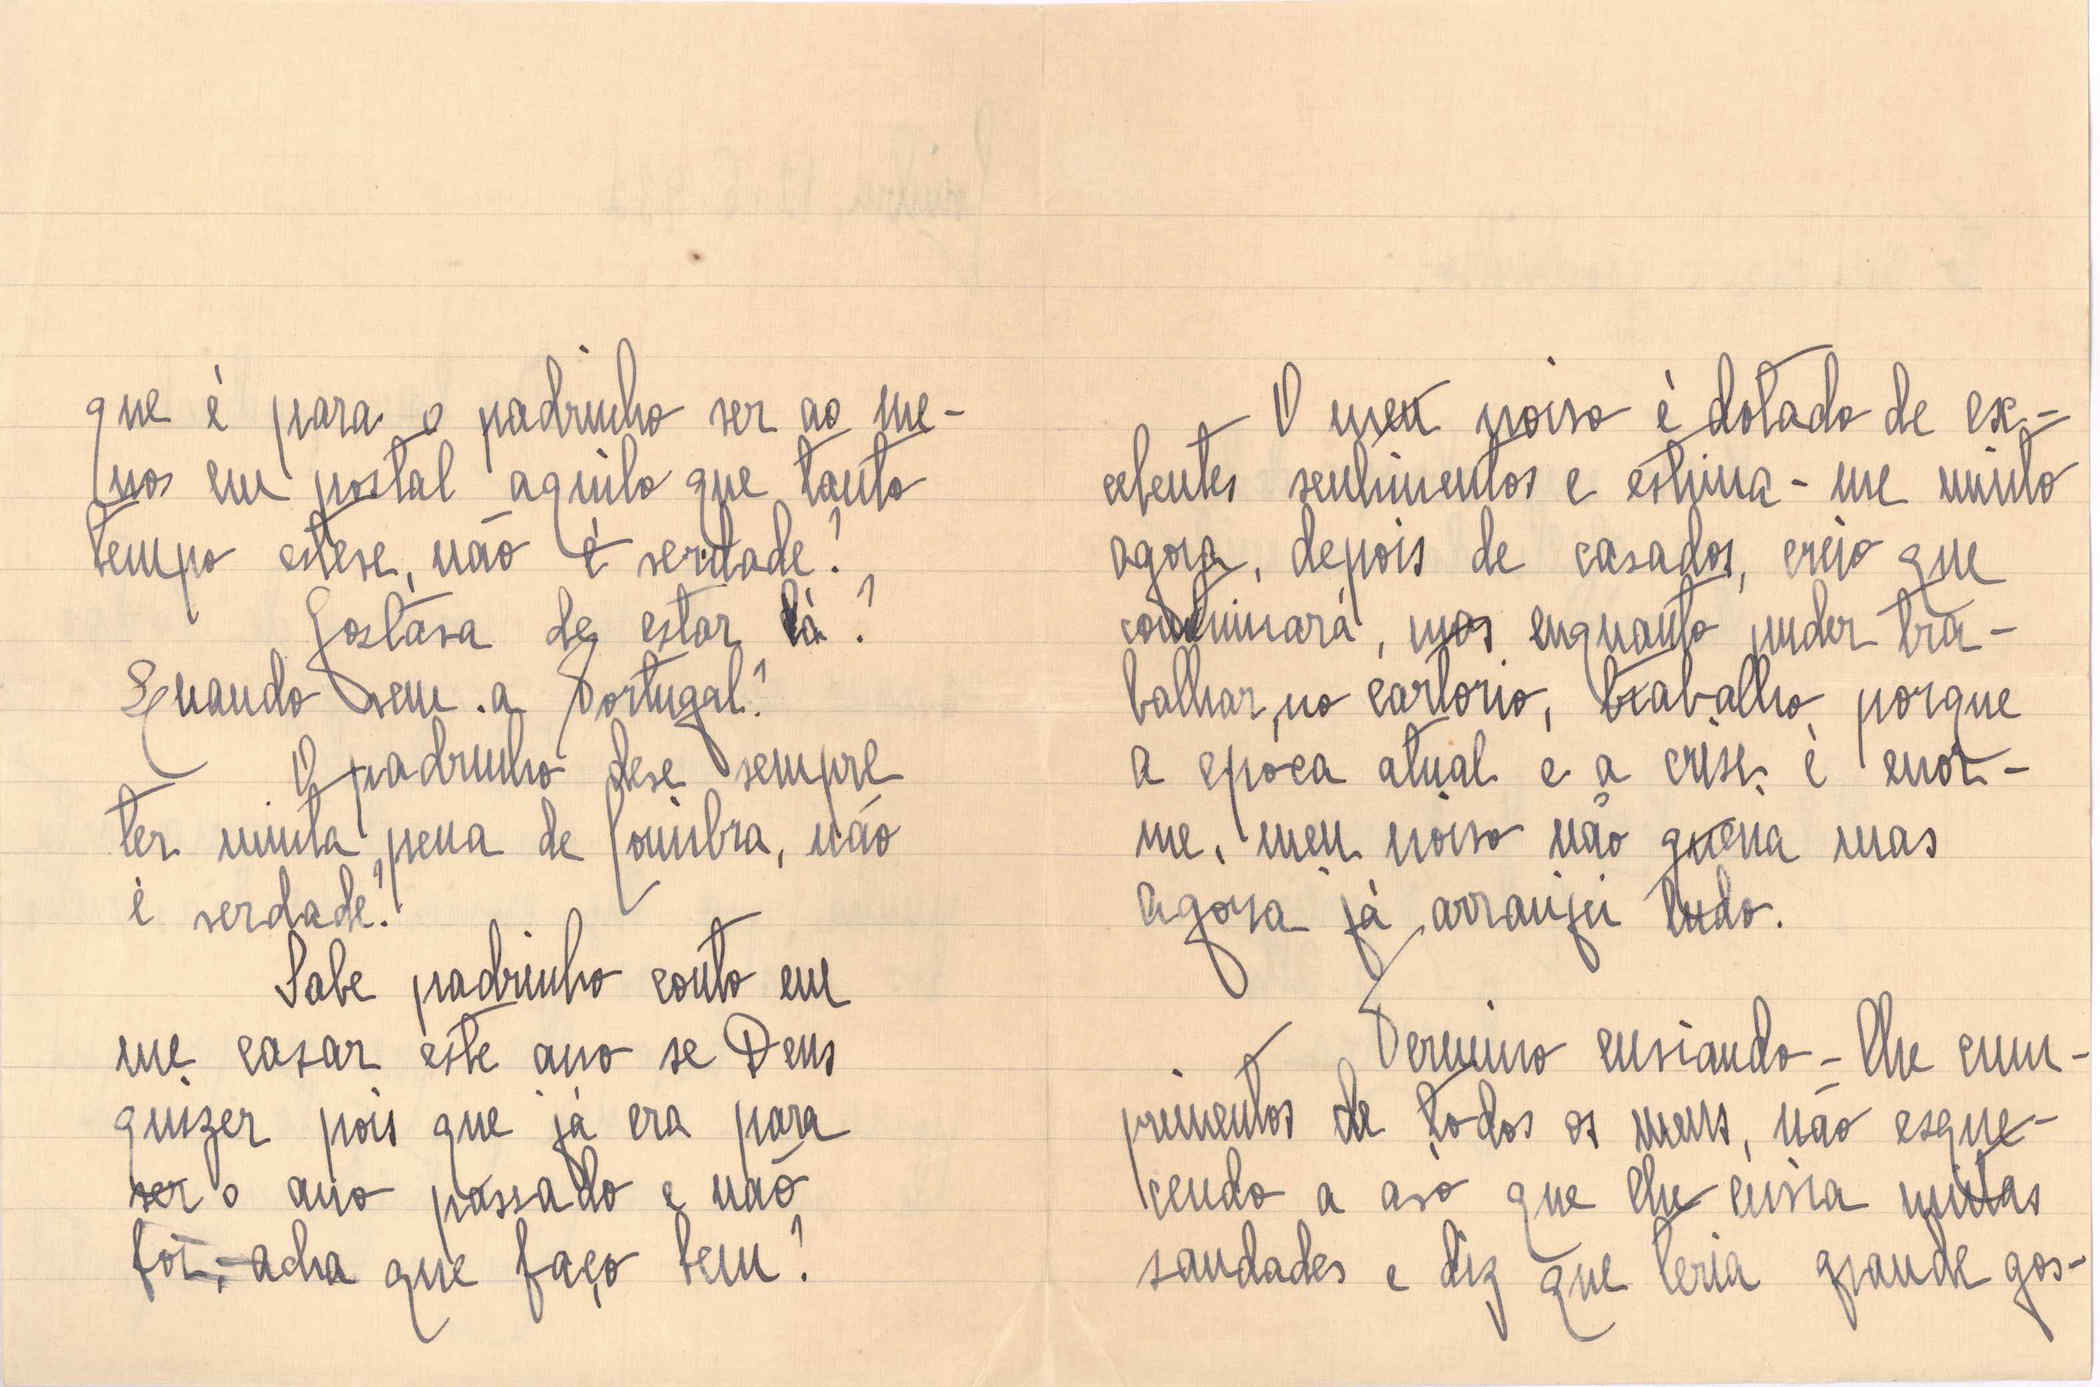 que é para o padrinho ver ao me-
nos em postal aquilo que tanto
tempo esteve, não é verdade?
Gostava de estar lá?
Quando vem a Portugal?
O padrinho deve sempre
ter muita pena de Coimbra, não
é verdade?
Sabe padrinho conto em
me casar este ano se Deus
quizer pois que já era para
ser o ano passado e não
foi, acha que faço bem?
O meu noivo é dotado de ex-
celentes sentimentos e estima-me muito
agora, depois de casados, creio que
continuará, mas enquanto puder tra-
balhar, no cartorio, trabalho porque
a epoca atual e a crise é enor-
me, meu noivo não queria mas
agora já arranjei tudo.
Termino enviando-lhe cum-
primentos de todos os meus, não esque-
cendo a avó que lhe envia muitas
saudades e diz que teria grande gos-